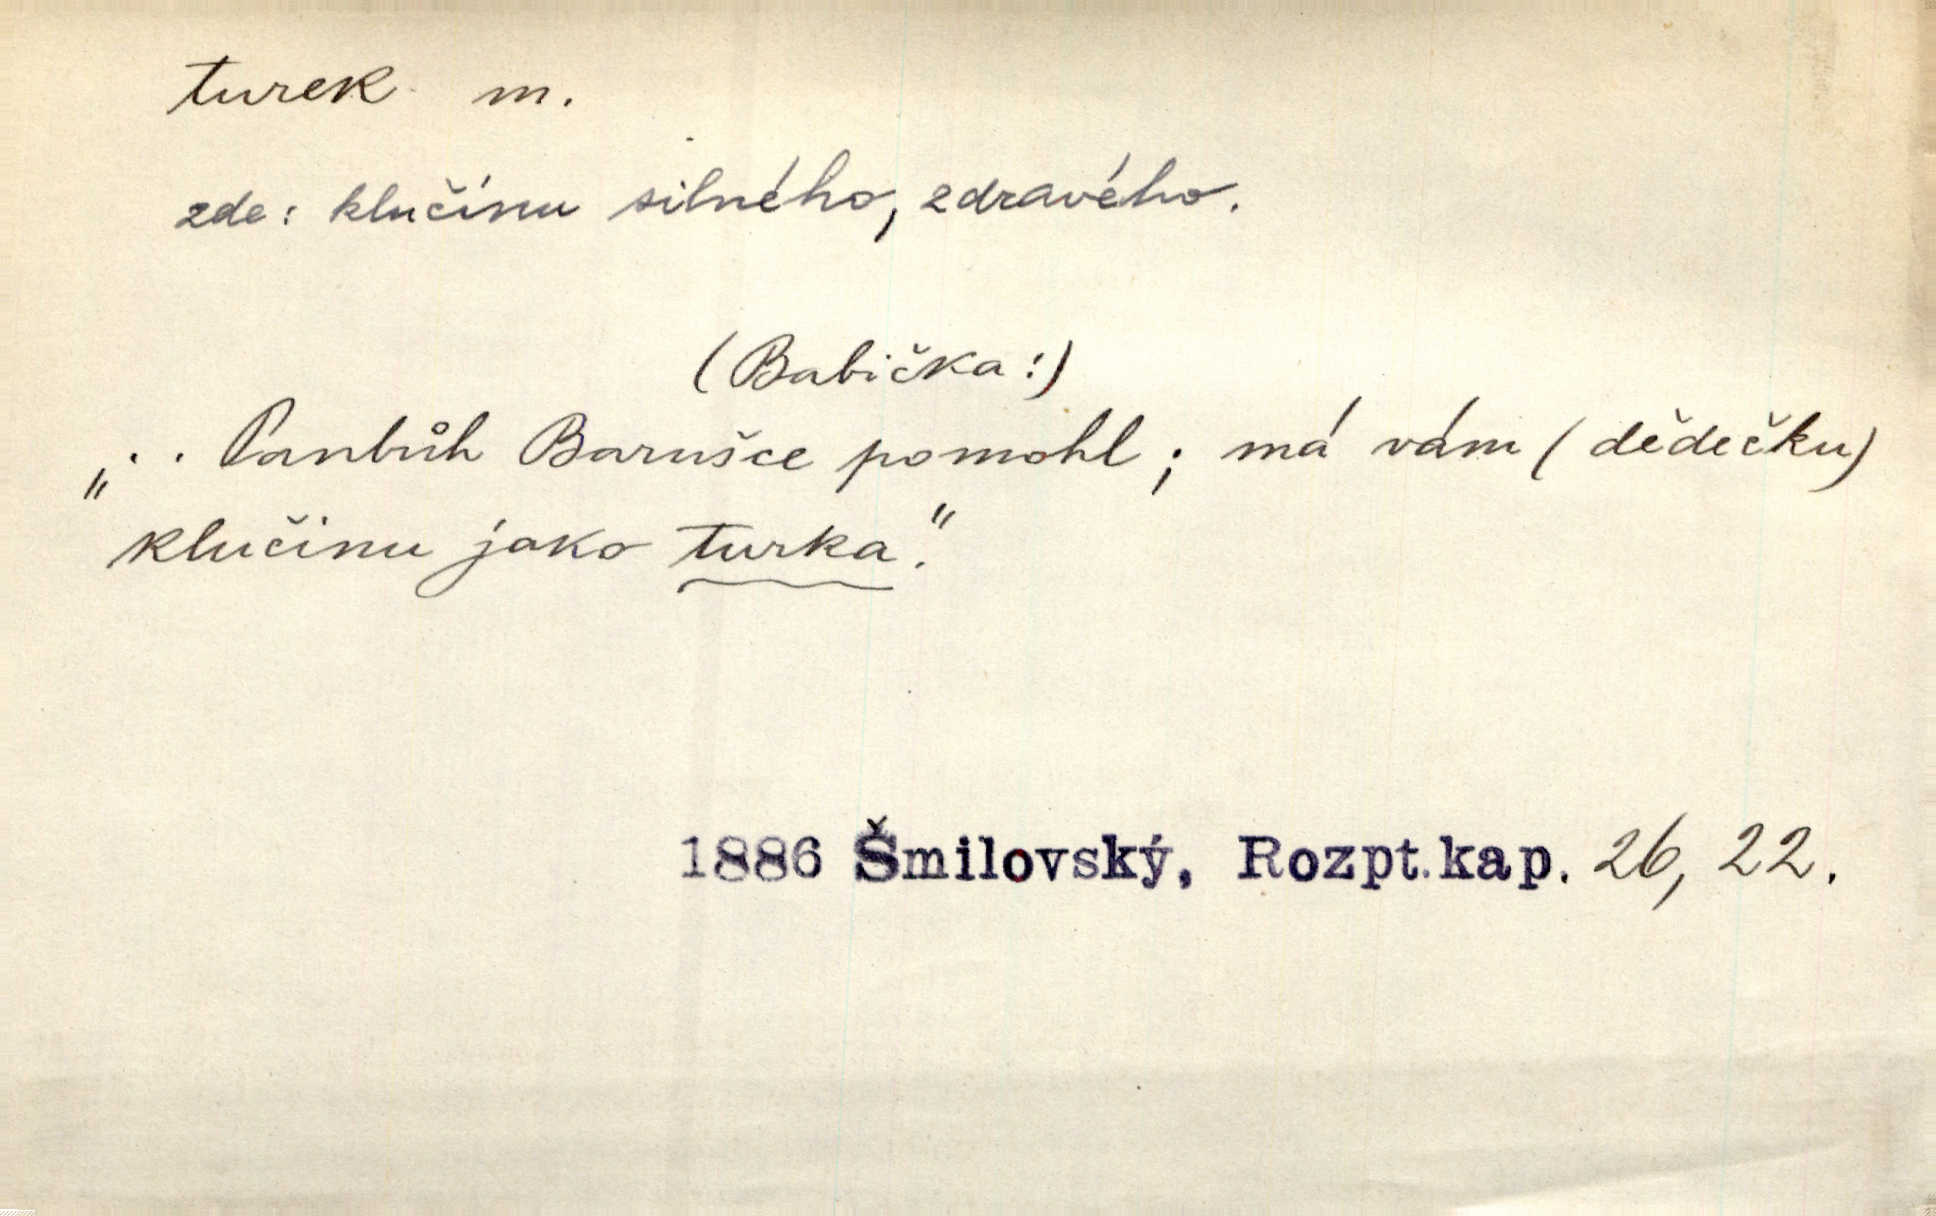 turek m.
zde: klučinu silného, zdravého.
(Babička:)
„. . Pánbůh Barušce pomohl; má vám (dědečku)
klučinu jako turka."
1886 Šmilovský, Rozpt.kap. 26, 22.